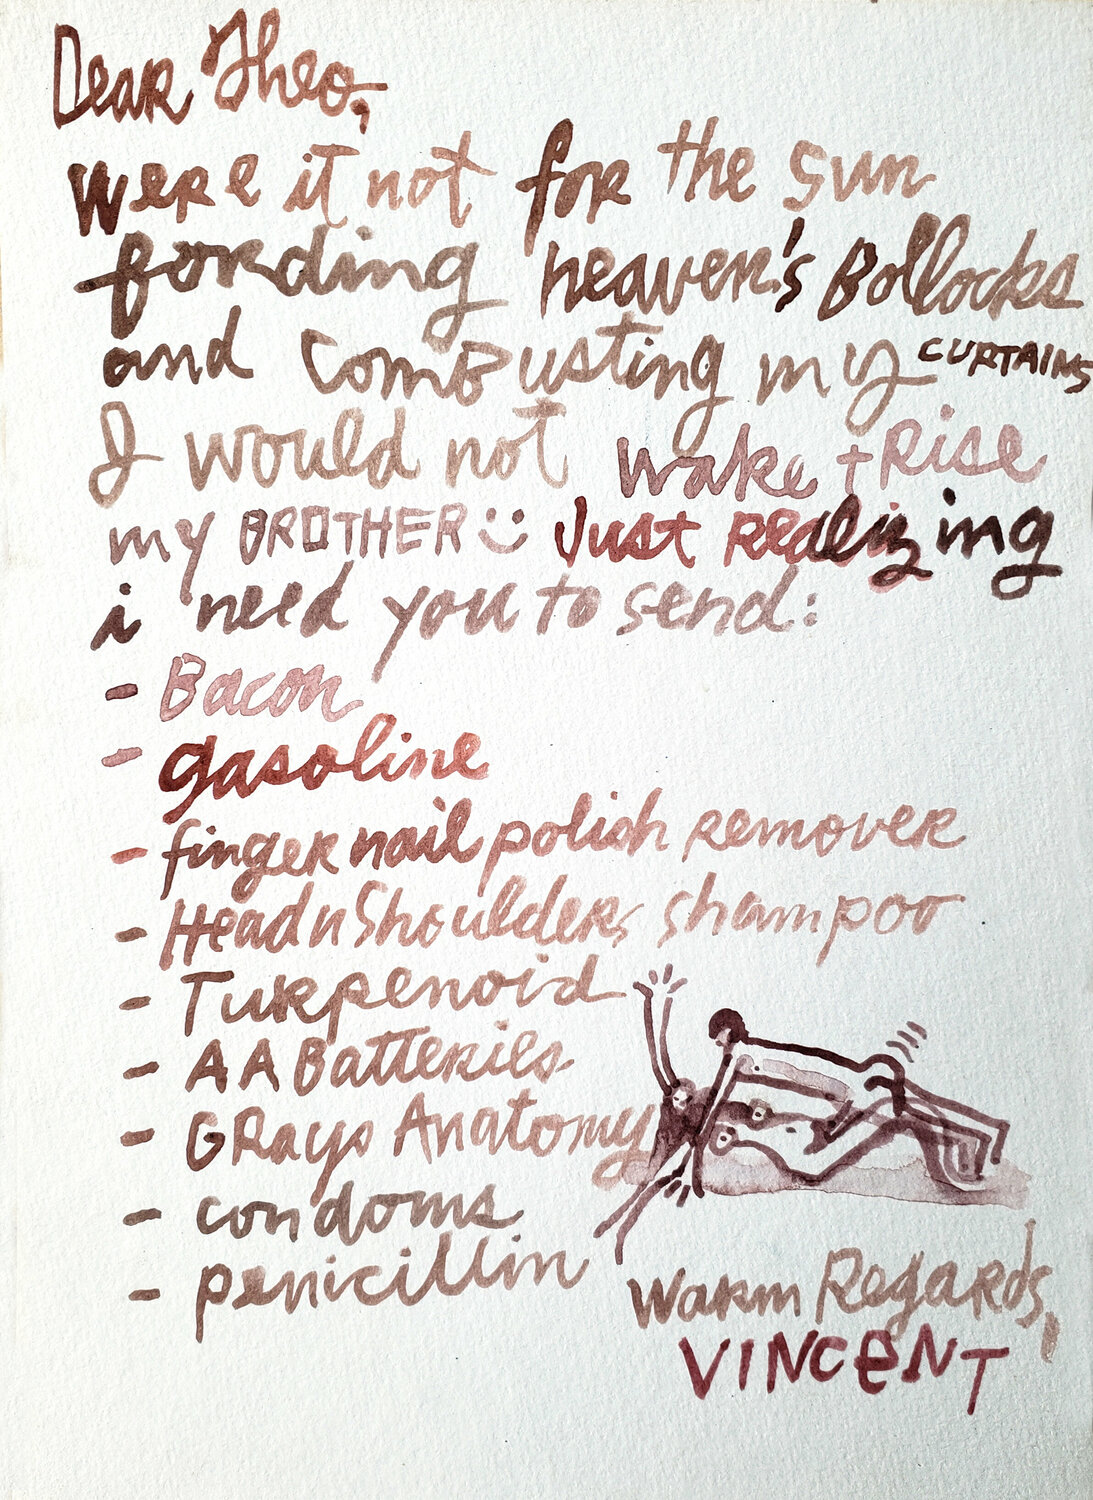 Dear Theo,
were it not for the sun
fording heaven's Bollocks
and comBusting my CURTAINS
I would not wake + Rise
my BROTHER Just Realizing
i need you to send:
- Bacon
- gasoline
- finger nail polish remover
- Head n Shoulders shampoo
- Turpenoid
- AA Batteries
- GRays Anatomy
- condoms
- penicillin
Warm Regards,
VINCeNT